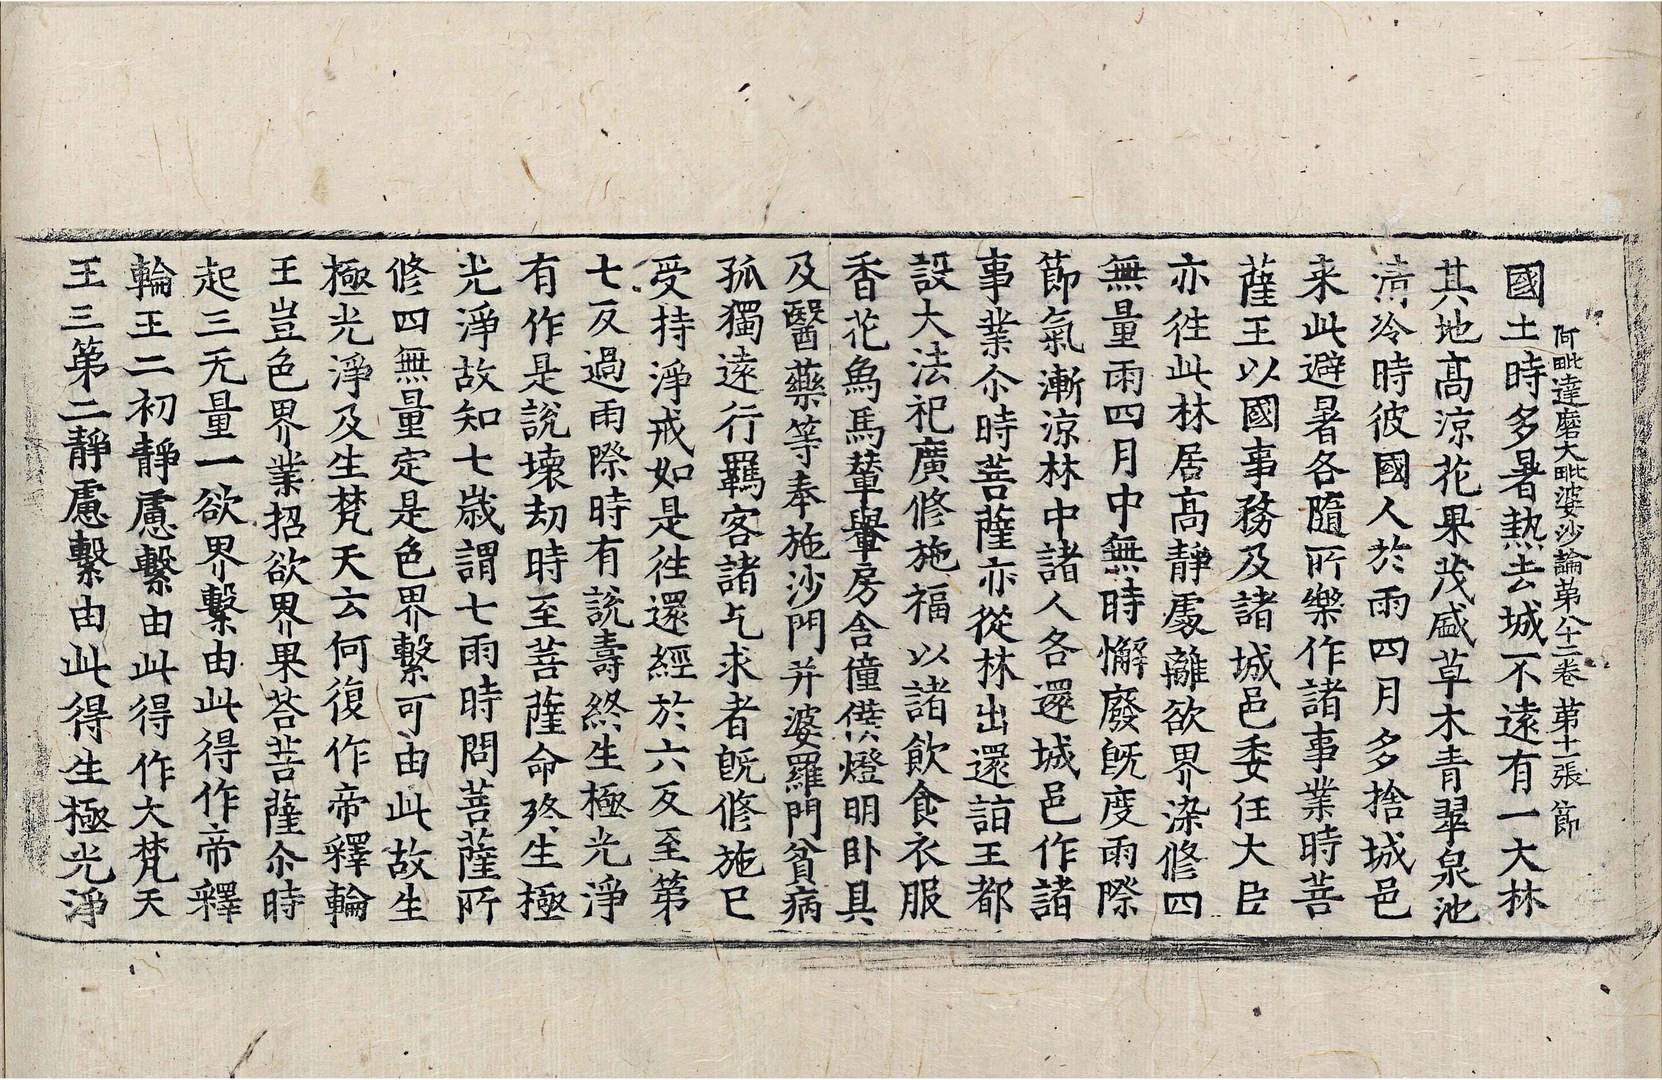 阿毗達磨大毗婆沙論第八十二卷 第十一張 節
國土時多暑熱去城不遠有一大林
其地高涼花果茂盛草木青翠泉池
清冷時彼國人於雨四月多捨城邑
来此避暑各隨所樂作諸事業時菩
薩王以國事務及諸城邑委任大臣
亦往此林居高靜處離欲界染修四
無量雨四月中無時懈廢既度雨際
節氣漸涼林中諸人各還城邑作諸
事業尒時菩薩亦從林出還詣王都
設大法祀廣修施福以諸飲食衣服
香花象馬輦轝房舍僮僕燈明卧具
及醫藥等奉施沙門并婆羅門貧病
孤獨遠行羈客諸乞求者既修施已
受持淨戒如是往還經於六反至第
七反過雨際時有說壽終生極光淨
有作是說壞劫時至菩薩命終生極
光淨故知七歲謂七雨時問菩薩所
修四無量定是色界繫可由此故生
極光淨及生梵天云何復作帝釋輪
王豈色界業招欲界果荅菩薩尒時
起三无量一欲界繫由此得作帝釋
輪王二初靜慮繫由此得作大梵天
王三第二靜慮繫由此得生極光淨